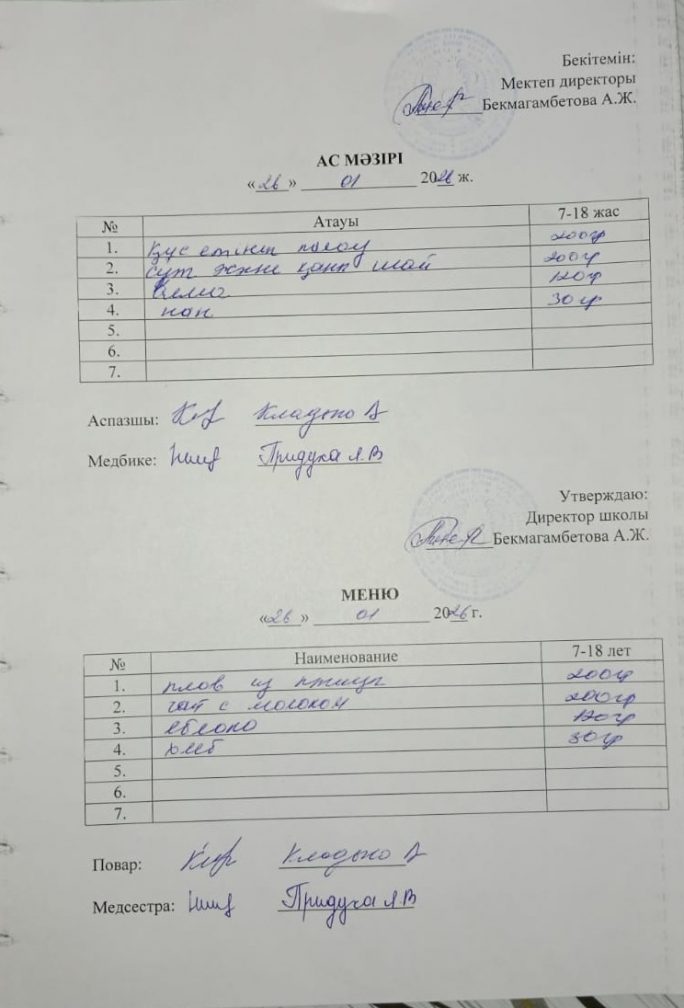 Бекітемін:
Мектеп директоры
Бекмагамбетова А.Ж.
АС МӘЗІРІ
«26» 01 2026 ж.
№ Атауы 7-18 жас
1. Құс етінен палау 200гр
2. сүт және қант шай 200гр
3. алма 120гр
4. нан 30гр
5.
6.
7.
Аспазшы:
Медбике: Придуха Л.В
Утверждаю:
Директор школы
Бекмагамбетова А.Ж.
МЕНЮ
«26» 01 2026 г.
№ Наименование 7-18 лет
1. плов из птицы 200гр
2. чай с молоком 200гр
3. яблоко 120гр
4. хлеб 30гр
5.
6.
7.
Повар:
Медсестра: Придуха Л.В